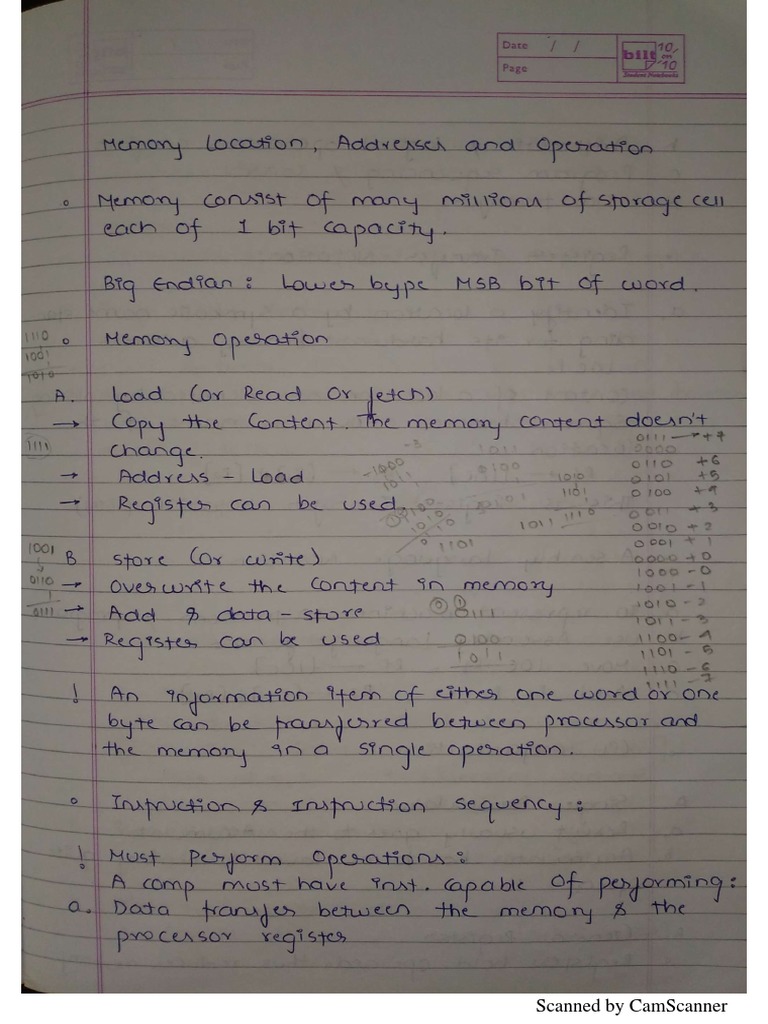 Date / /
Page
bilt 10 on 10
Student Notebooks
Memory Location, Addresses and Operation
o Memory consist of many millions of storage cell
each of 1 bit capacity.
Big Endian : Lower bype MSB bit of word.
o Memory Operation
1110
1001
1010
A. Load (or Read or fetch)
→ Copy the Content. The memory content doesn't
1111
change.
→ Address - Load
→ Register can be used.
0111 → +7
0000
0110 +6
0101 +5
0100 +4
0011 +3
0010 +2
0001 +1
0000 +0
1000 -0
1001 -1
1010 -2
1011 -3
1100 -4
1101 -5
1110 -6
1111 -7
-3
-1000
1011
0100
1010
1101
1011 1110
0 1101
1001
0110
1
0111
B Store (or write)
→ Overwrite the content in memory
→ Add & data - store
→ Register can be used
0 1
0111
0100
1011
! An information item of either one word or one
byte can be transferred between processor and
the memory in a single operation.
o Instruction & Instruction sequency :
! Must Perform Operations :
A comp must have inst. capable of performing :
a. Data transfer between the memory & the
processor register
Scanned by CamScanner